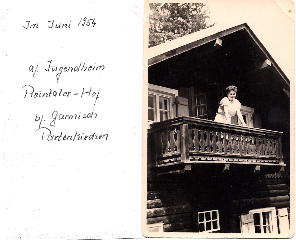 Im Juni 1954
a/ Jugendheim
Reintaler-Hof
b/ Garmisch
Partenkirchen